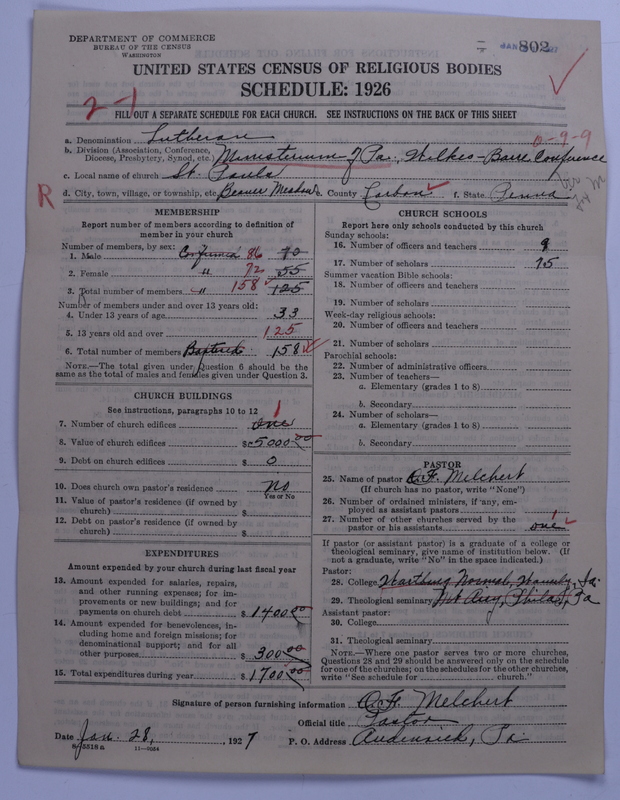 DEPARTMENT OF COMMERCE
BUREAU OF THE CENSUS
WASHINGTON
802
UNITED STATES CENSUS OF RELIGIOUS BODIES
SCHEDULE: 1926
2-1
FILL OUT A SEPARATE SCHEDULE FOR EACH CHURCH. SEE INSTRUCTIONS ON THE BACK OF THIS SHEET
a. Denomination Lutheran
0-9-9
b. Division (Association, Conference, Diocese, Presbytery, Synod, etc.) Ministerium of Pa., Wilkes-Barre Conference
c. Local name of church St. Pauls
R
d. City, town, village, or township, etc. Beaver Meadow e. County Carbon f. State Penna
MEMBERSHIP
Report number of members according to definition of
member in your church
Number of members, by sex:
1. Male Confirmed 86 70
2. Female " 72 55
3. Total number of members " 158 125
Number of members under and over 13 years old:
4. Under 13 years of age 33
5. 13 years old and over 125
6. Total number of members Baptized 158
NOTE.—The total given under Question 6 should be the
same as the total of males and females given under Question 3.
CHURCH BUILDINGS
See instructions, paragraphs 10 to 12
7. Number of church edifices one 1
8. Value of church edifices $ 5000 00
9. Debt on church edifices $ 0
10. Does church own pastor's residence? No
Yes or No
11. Value of pastor's residence (if owned by
church) $
12. Debt on pastor's residence (if owned by
church) $
EXPENDITURES
Amount expended by your church during last fiscal year
13. Amount expended for salaries, repairs,
and other running expenses; for im-
provements or new buildings; and for
payments on church debt $ 1400 00
14. Amount expended for benevolences, in-
cluding home and foreign missions; for
denominational support; and for all
other purposes $ 300 00
15. Total expenditures during year $ 1700 00
CHURCH SCHOOLS
Report here only schools conducted by this church
Sunday schools:
16. Number of officers and teachers 9
17. Number of scholars 75
Summer vacation Bible schools:
18. Number of officers and teachers
19. Number of scholars
Week-day religious schools:
20. Number of officers and teachers
21. Number of scholars
Parochial schools:
22. Number of administrative officers
23. Number of teachers—
a. Elementary (grades 1 to 8)
b. Secondary
24. Number of scholars—
a. Elementary (grades 1 to 8)
b. Secondary
PASTOR
25. Name of pastor O. F. Melchert
(If church has no pastor, write "None")
26. Number of ordained ministers, if any, em-
ployed as assistant pastors
27. Number of other churches served by the
pastor or his assistants one 1
If pastor (or assistant pastor) is a graduate of a college or
theological seminary, give name of institution below. (If
not a graduate, write "No" in the space indicated.)
Pastor:
28. College Wartburg Normal, Waverly, Ia.
29. Theological seminary Mt Airy, Philad, Pa
Assistant pastor:
30. College
31. Theological seminary
NOTE.—Where one pastor serves two or more churches,
Questions 28 and 29 should be answered only on the schedule
for one of the churches; on the schedules for the other churches,
write "See schedule for church."
Signature of person furnishing information O. F. Melchert
Official title Pastor
Date Jan. 28, 1927 P. O. Address Audenried, Pa.
8-5518 a 11-9064